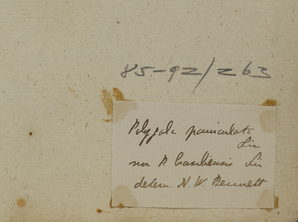 85-92/263
Polygala paniculata
Lin
non P. Caribensis Lin
determ. A. W. Bennett